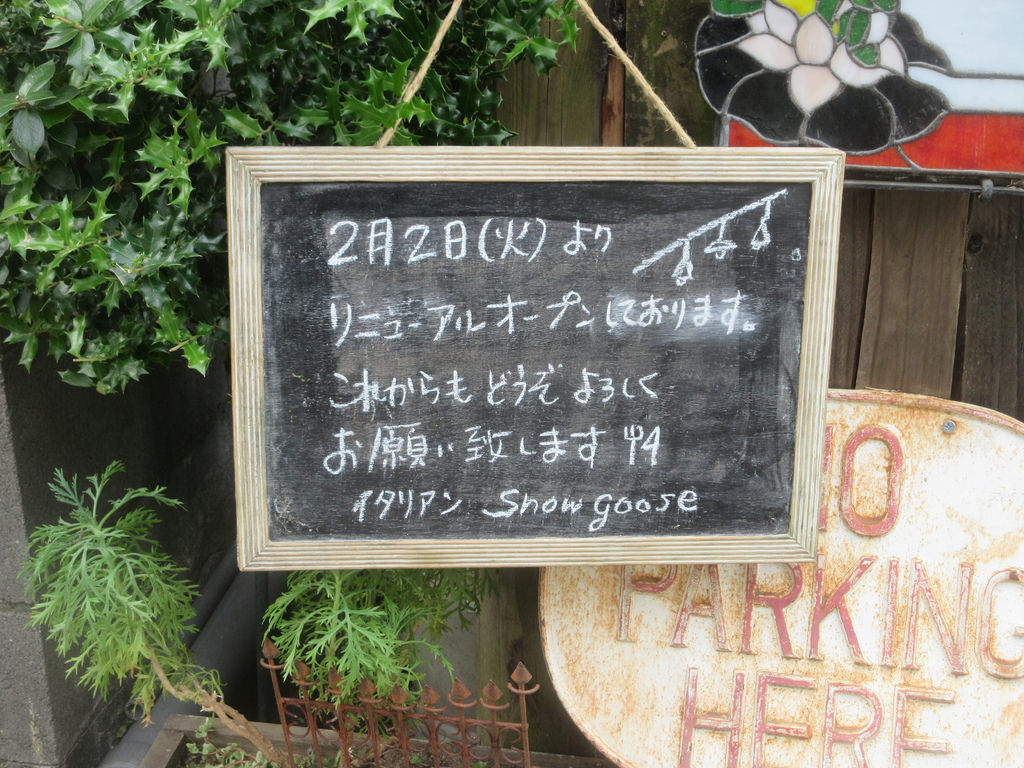 2月2日(火)より
リニューアルオープンしております。
これからもどうぞよろしく
お願い致します
イタリアン Snow goose
NO
PARKING
HERE